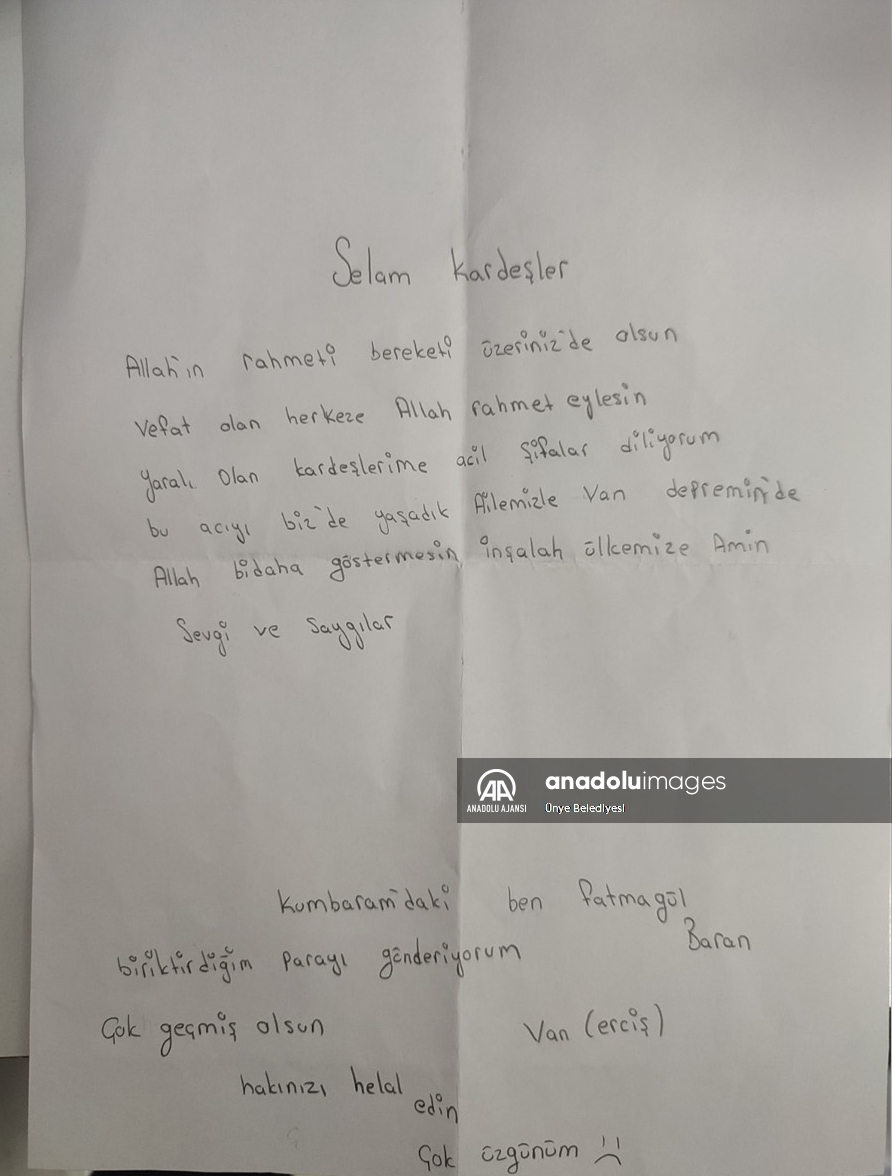 Selam kardeşler
Allah'ın rahmeti bereketi üzeriniz'de olsun
Vefat olan herkeze Allah rahmet eylesin
yaralı olan kardeşlerime acil şifalar diliyorum
bu acıyı biz'de yaşadık Ailemizle Van depremin'de
Allah bidaha göstermesin inşalah ülkemize Amin
Sevgi ve Saygılar
anadoluimages
ANADOLU AJANSI
Ünye Belediyesi
Kumbaram'daki
biriktirdiğim parayı gönderiyorum
Çok geçmiş olsun
hakınızı helal
edin
Çok üzgünüm :(
ben fatmagül
Baran
Van (erciş)